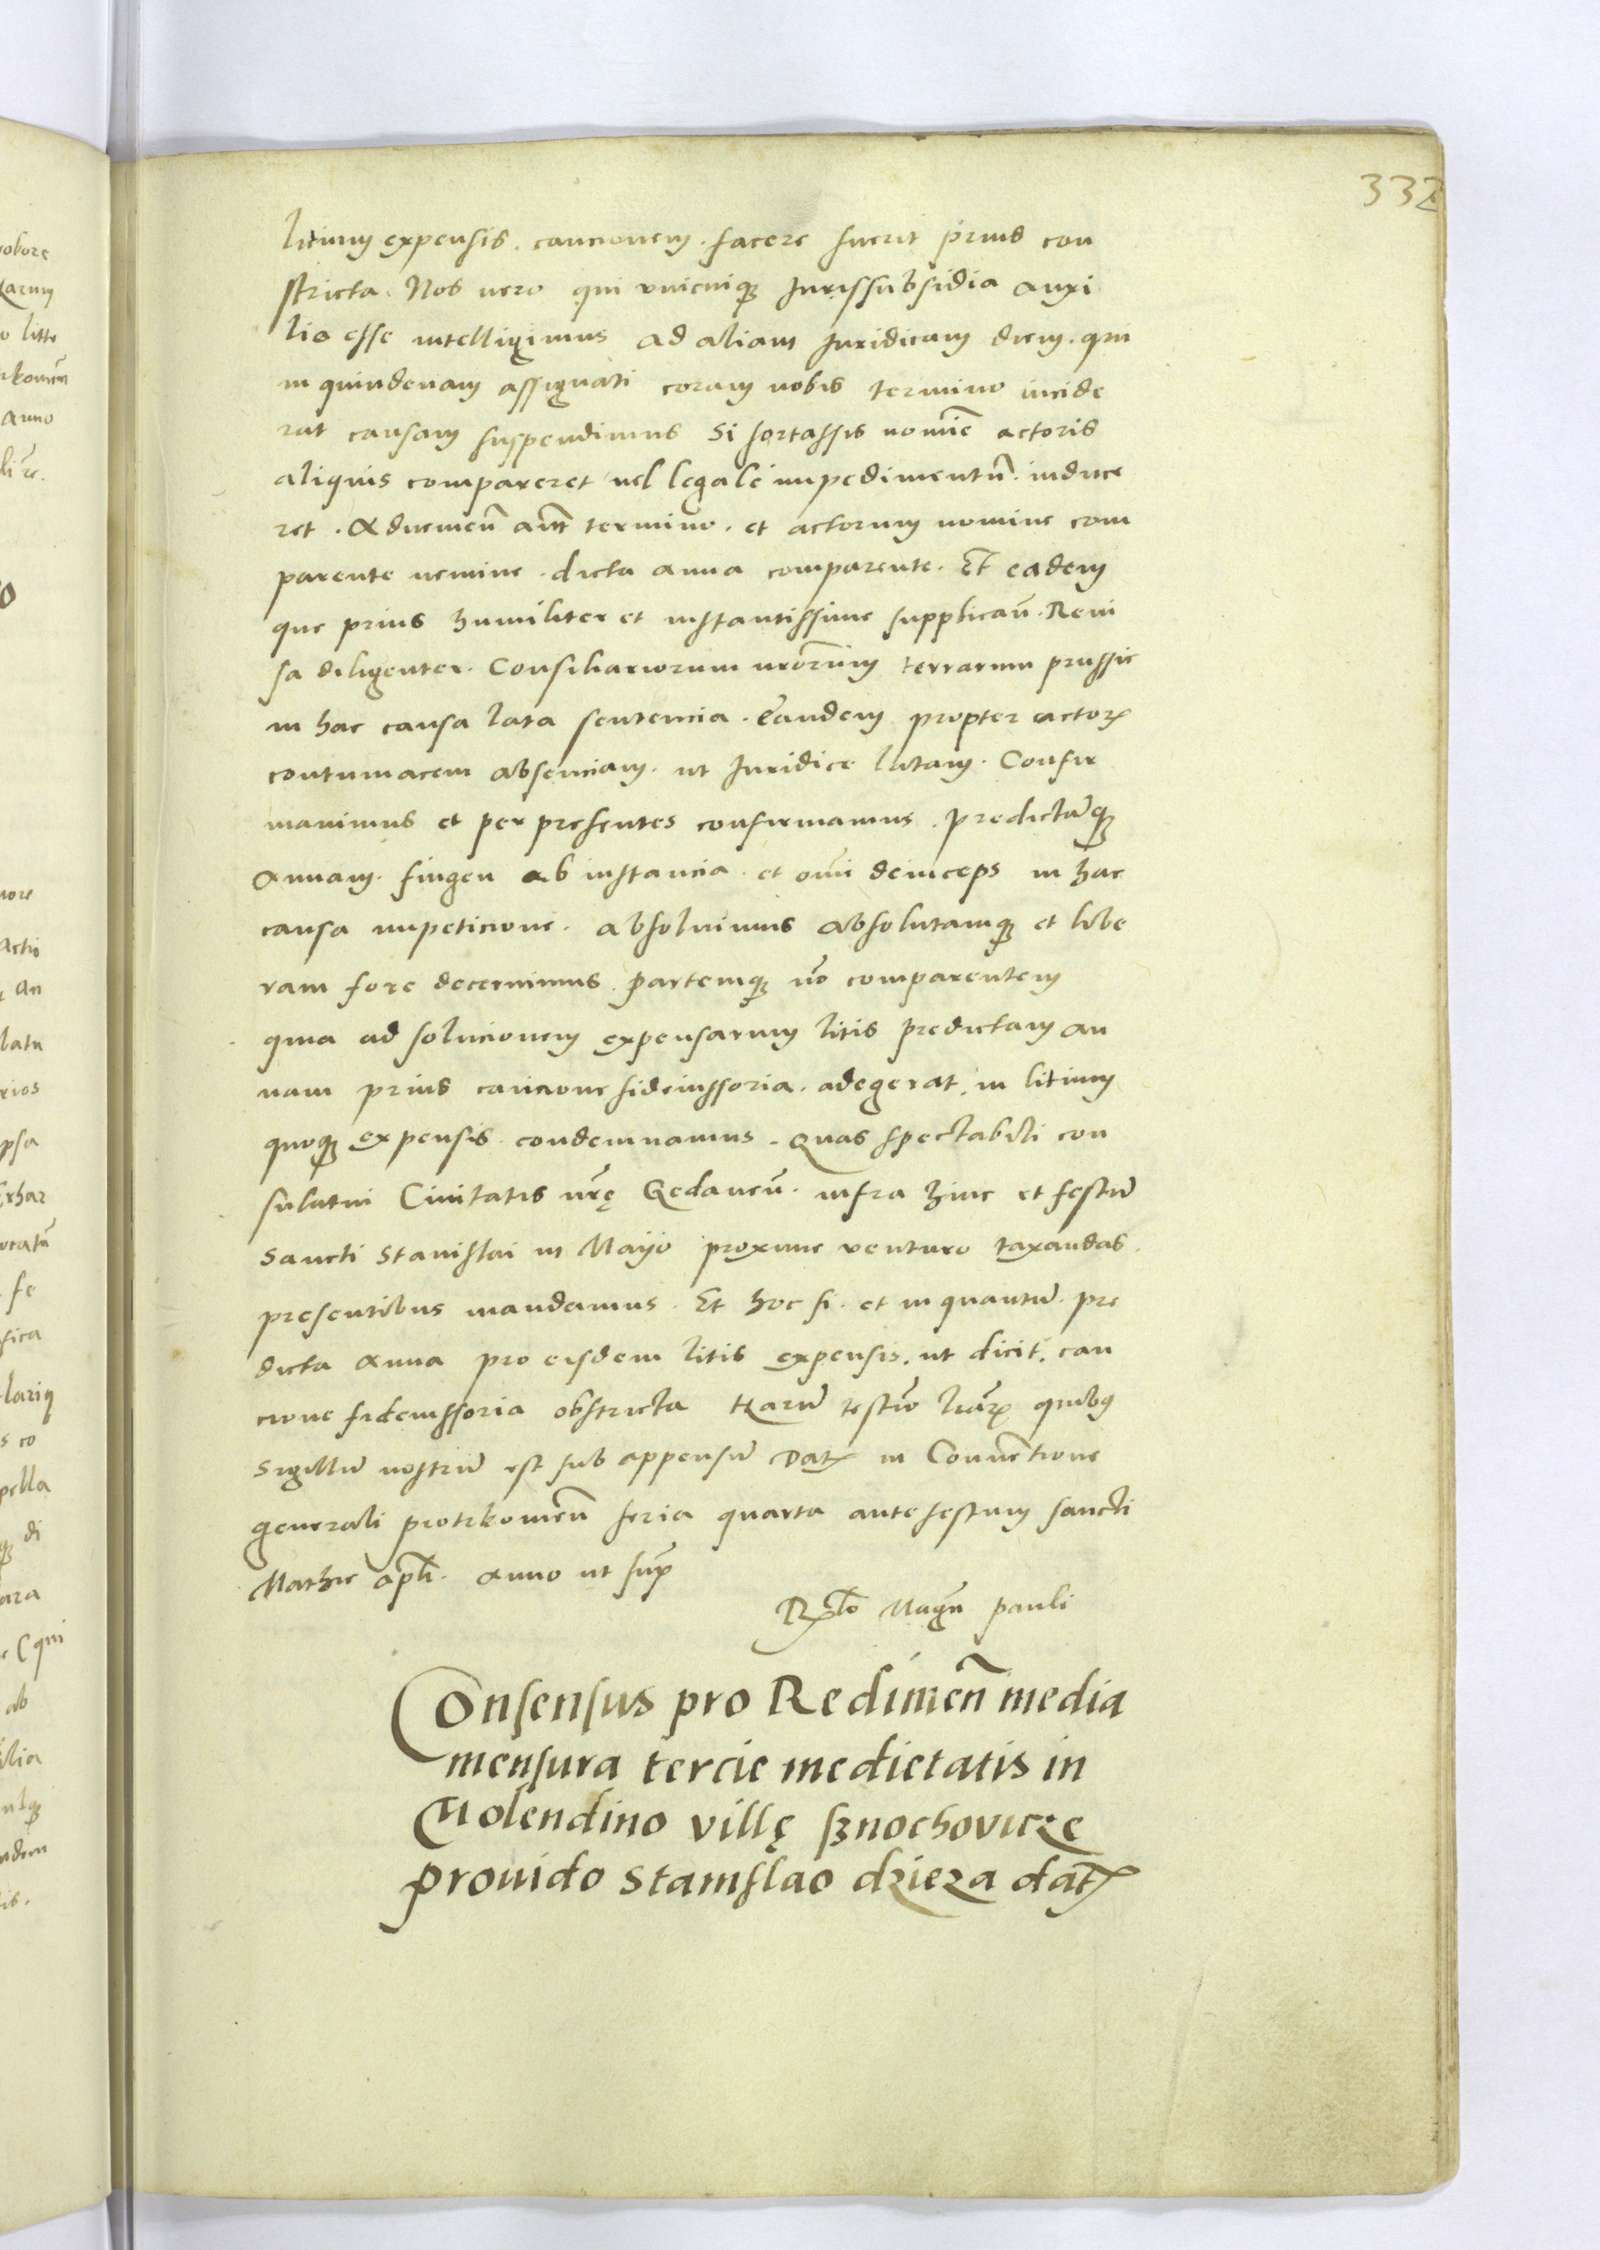 332
litium expensis. caucionem. facere fuerit prius con
stricta. Nos uero qui vnicuiqz Jurissubsidia auxi
lio esse intelligimus ad aliam Juridicam diem. qui
in quindenam assignati coram nobis termino incide
rat causam suspendimus Si fortassis nomie actoris
aliquis compareret uel legale impedimentū. induce
ret. Adueniēn aūt termino. et actorum nomine com
parente nemine. dicta anna comparente. Et eadem
que prius humiliter et instantissime supplicañ. Reui
sa diligenter. Consiliariorum nrōrum terrarum prussie
in hac causa lata sentencia. eandem propter actorꝝ
contumacem absenciam. ut Juridice latam. Confir
mauimus et per presentes confirmamus. predictāqz
annam. fingen ab instancia. et omī deinceps in hac
causa impeticione. absoluimus absolutamqz et libe
ram fore decernimus. partemqz nō comparentem
quia ad solucionem expensarum litis predictam an
nam prius caucione fideiussoria. adegerat. in litium
quoqz expensis condemnamus. quas spectabili con
sulatui Ciuitatis nrę Gedaneñ. infra hinc et festū
sancti Stanislai in Mayo proxime venturo taxandas.
presentibus mandamus. Et hoc si. et in quantū. pre
dicta anna pro eisdem litis expensis. ut dicit. cau
cione fideiussoria obstricta Harū testīo lrāꝝ quibus
sigillū nostrū est sub appensū Datꝝ in Conuētione
generali piotrkouieñ feria quarta ante festum sancti
Mathie apłi. anno ut supꝝ
Rło Magñ pauli
Consensus pro Redimeñ media
mensura tercie medietatis in
Molendino villę sznochovicze
prouido Stanislao dzieza datꝝ